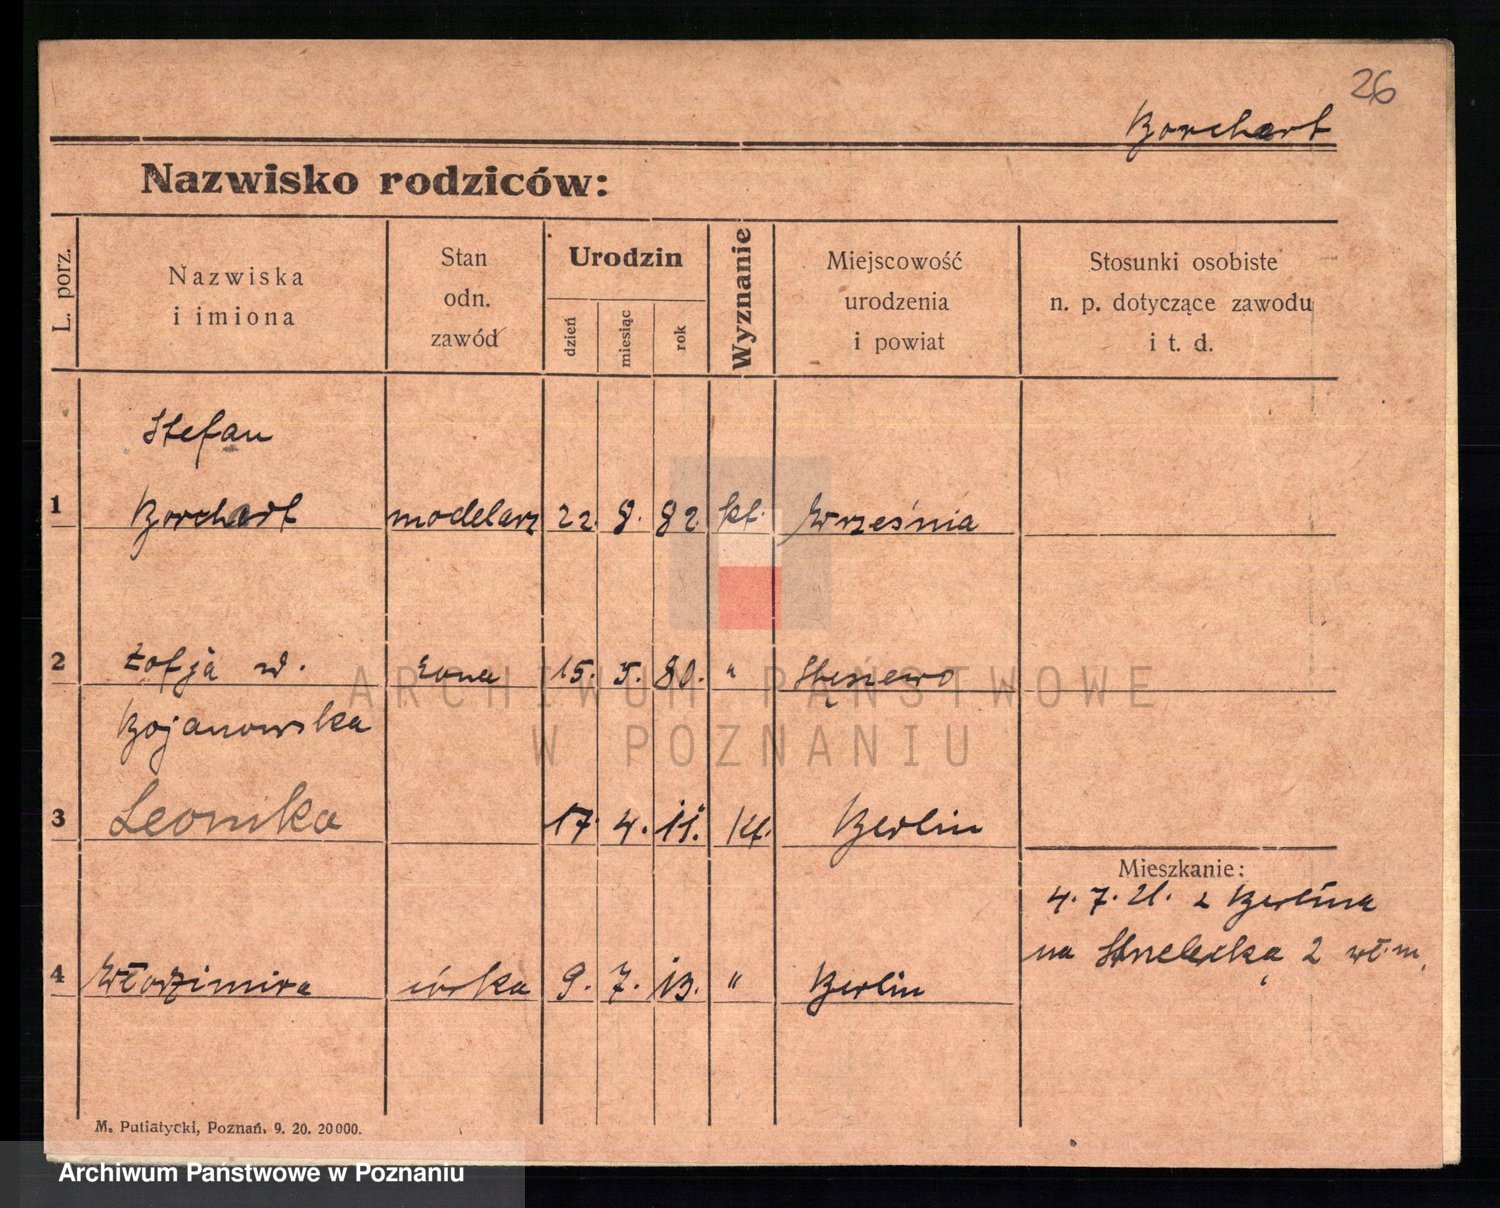 26
Borchart
Nazwisko rodziców:
L. porz.
Nazwiska
i imiona
Stan
odn.
zawód
Urodzin
dzień
miesiąc
rok
Wyznanie
Miejscowość
urodzenia
i powiat
Stosunki osobiste
n. p. dotyczące zawodu
i t. d.
Stefan
1 Borchart modelarz 22. 8. 82. kt. Września
2 Zofja ur. żona 15. 5. 80. " Stęszewo
Bojanowska
3 Leonika 17. 4. 11. kt. Berlin
Mieszkanie:
4. 7. 21. z Berlina
na Strzelecką 2 wł. m.
4 Włodzimira córka 9. 7. 13. " Berlin
M. Putiatycki, Poznań. 9. 20. 20 000.
ARCHIWUM PAŃSTWOWE
W POZNANIU
Archiwum Państwowe w Poznaniu